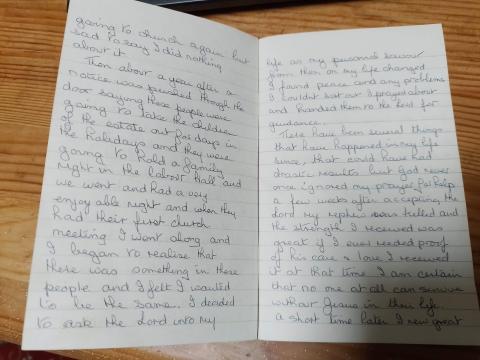 going to church again but
sad to say I did nothing
about it.
Then about a year after a
notice was pushed through the
door saying these people were
going to take the children
of the estate out for days in
the holidays and they were
going to hold a family
night in the labour Hall and
we went and had a very
enjoyable night and when they
had their first church
meeting I went along and
I began to realise that
there was something in these
people and I felt I wanted
to be the same. I decided
to ask the Lord into my
life as my personal saviour
from then on my life changed
I found peace and any problems
I couldn't sort out I prayed about
and handed them to the Lord for
guidance.
There have been several things
that have happened in my life
since, that could have had
drastic results but God never
once ignored my prayers for help
a few weeks after accepting the
Lord my nephew was killed and
the strength I received was
great if I ever needed proof
of his care & love I received
it at that time. I am certain
that no one at all can survive
without Jesus in their life.
a short time later I new great